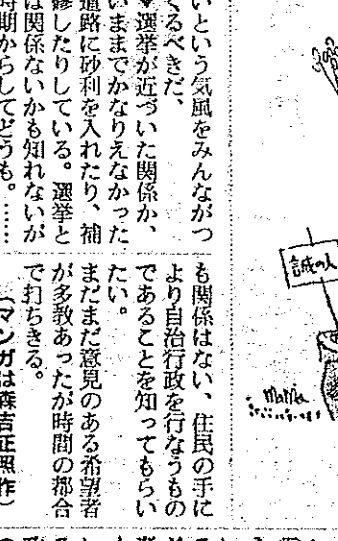 いという気風をみんながつ
くるべきだ、
▼選挙が近づいた関係か、
いままでかなりえなかった
道路に砂利を入れたり、補
修したりしている。選挙と
は関係ないかも知れないが
時期からしてどうも。……
も関係はない、住民の手に
より自治行政を行なうもの
であることを知ってもらい
たい。
まだまだ意見のある希望者
が多教あったが時間の都合
で打ちきる。
(マンガは森吉正照作)
誠の人